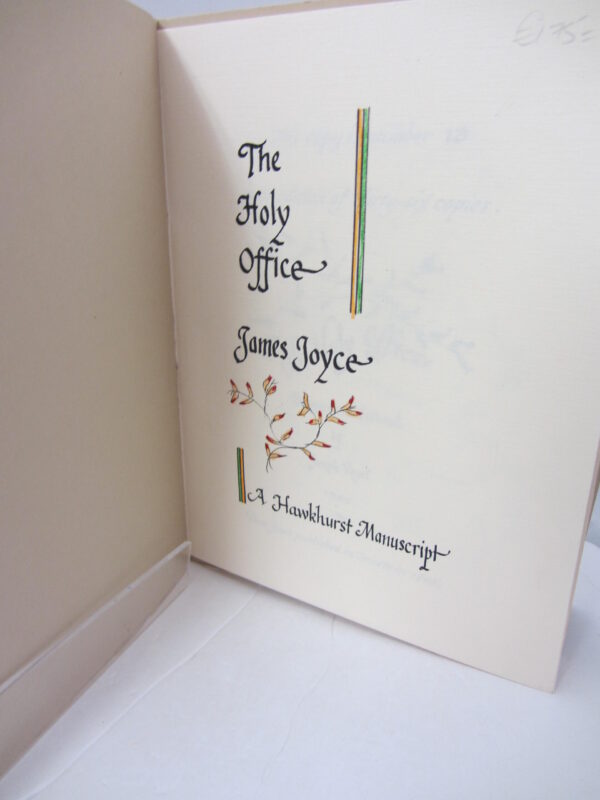 The
Holy
Office
James Joyce
A Hawkhurst Manuscript